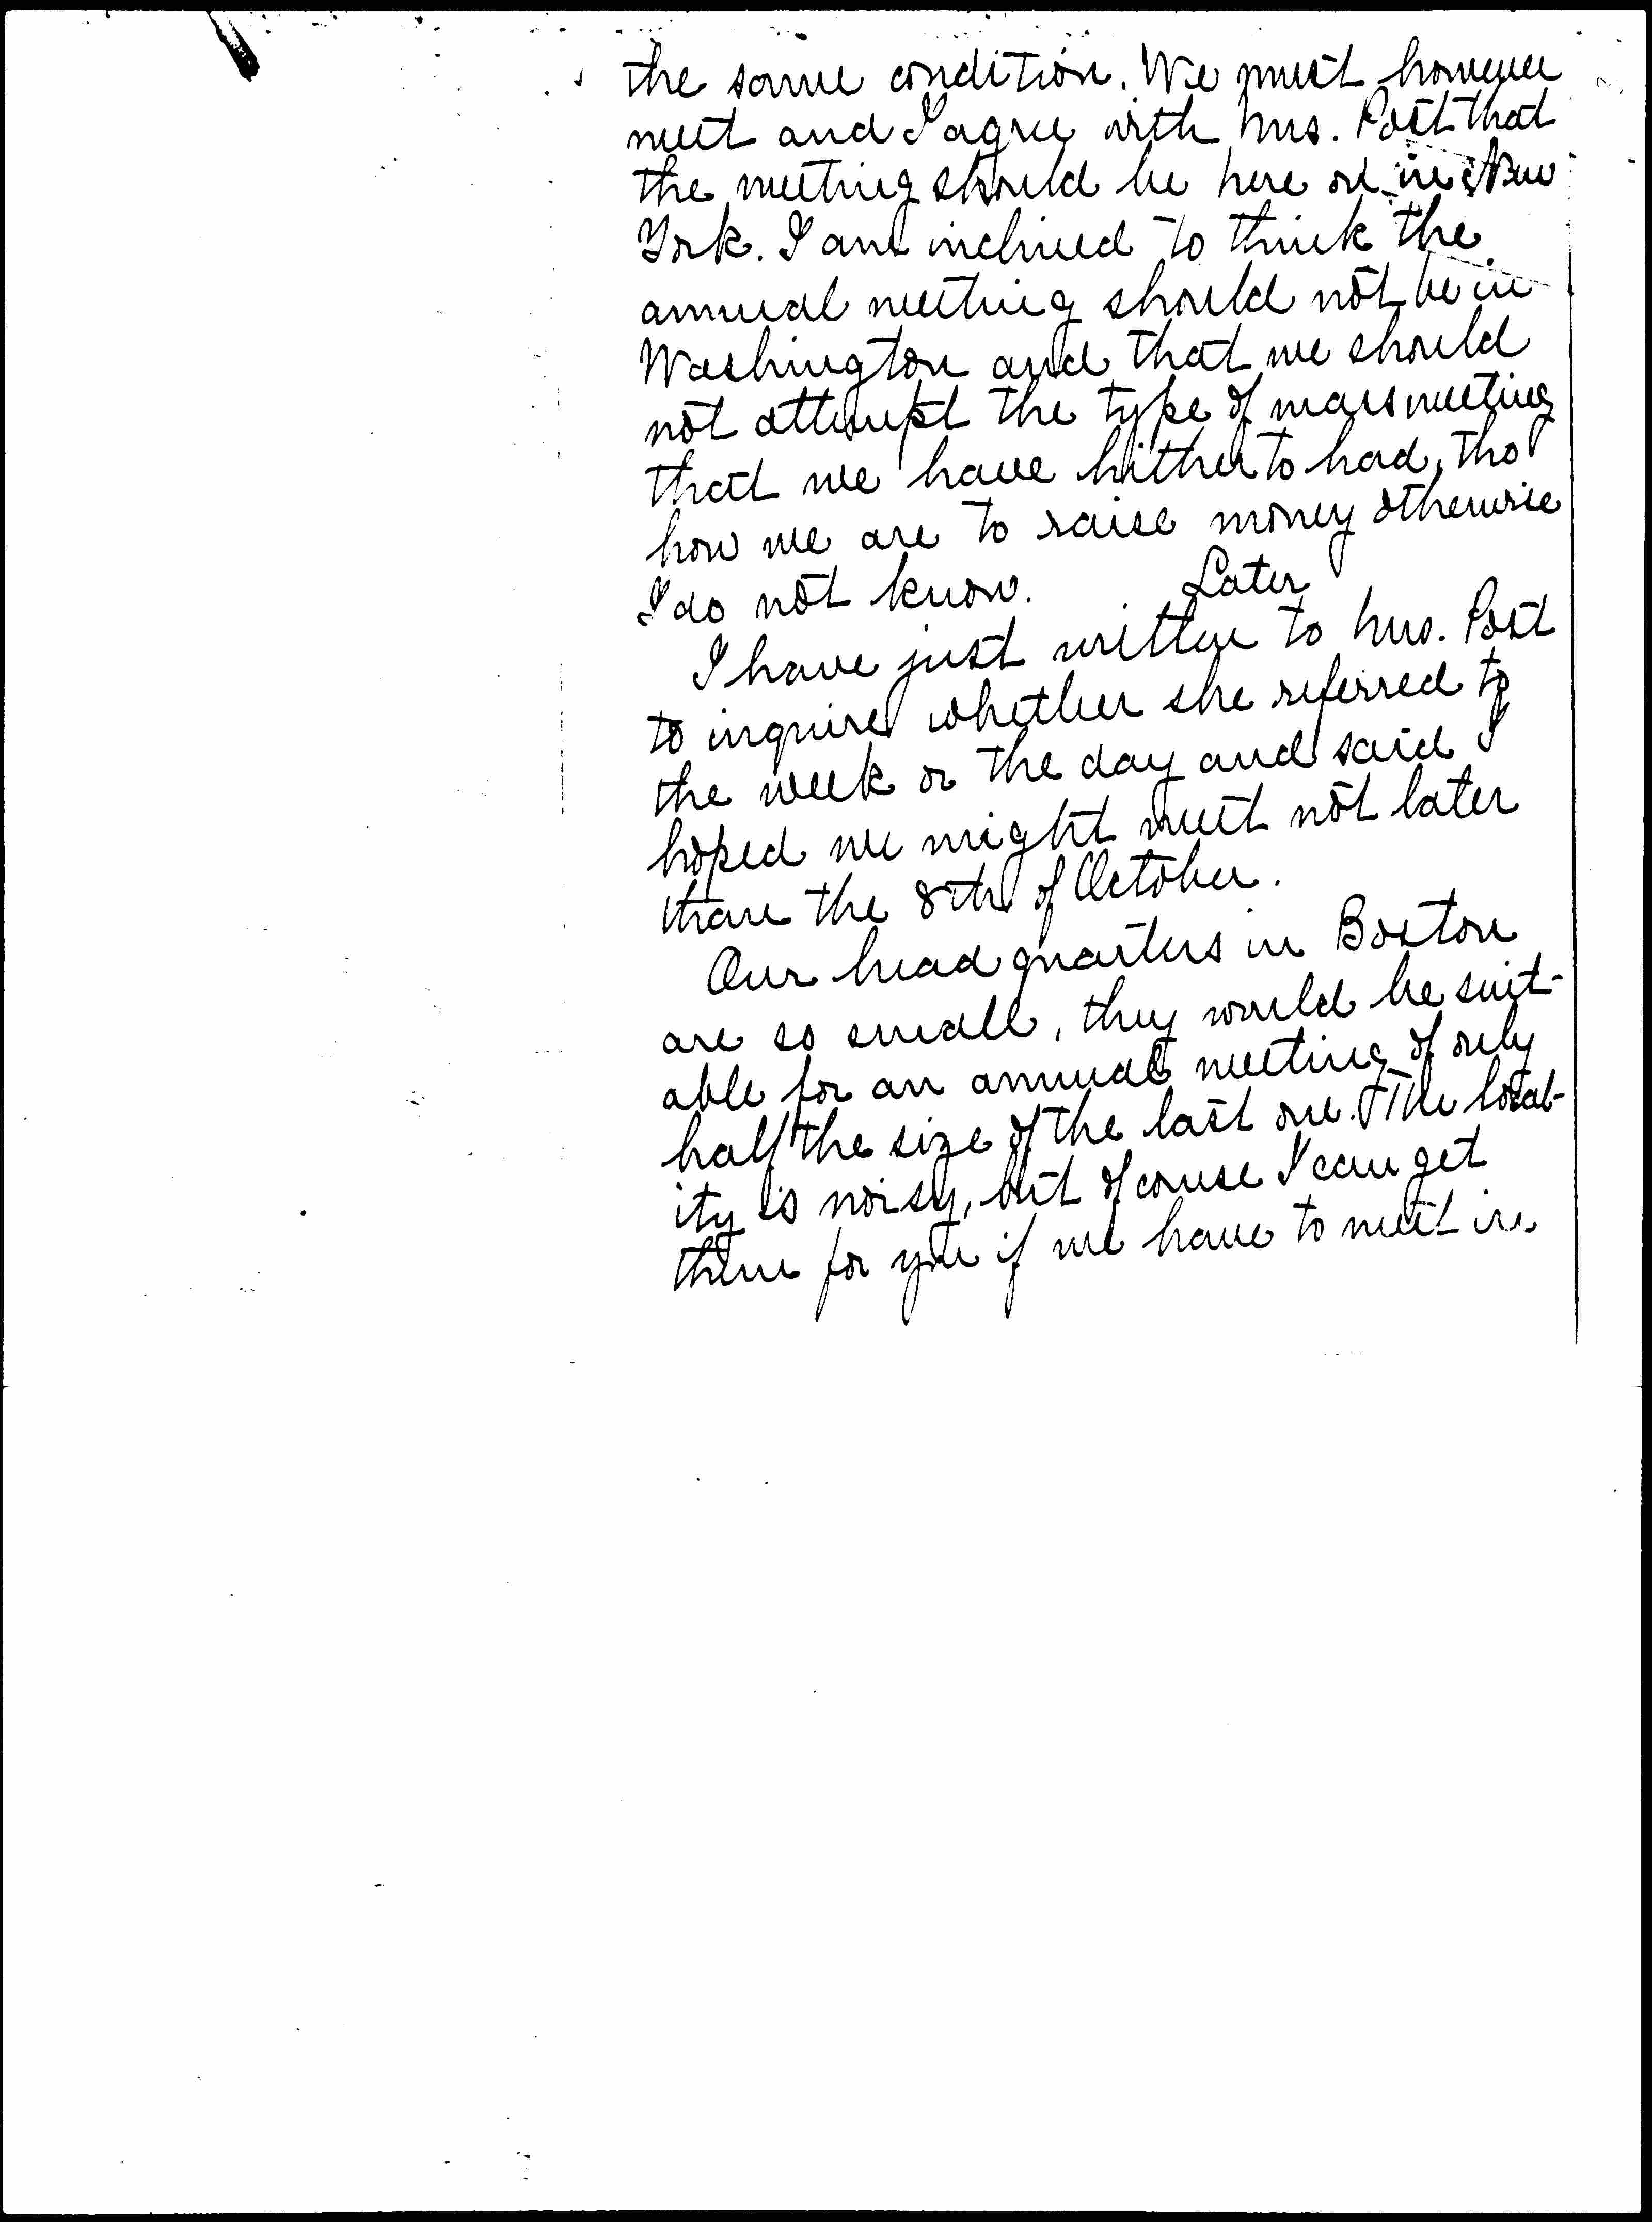 the same condition. We must however
meet and I agree with Mrs. Post that
the meeting should be here or in New
York. I am inclined to think the
annual meeting should not be in
Washington and that we should
not attempt the type of mass meeting
that we have hitherto had, tho
how we are to raise money otherwise
I do not know. Later
I have just written to Mrs. Post
to inquire whether she referred to
the week or the day and said I
hoped we might meet not later
than the 8th of October.
Our headquarters in Boston
are so small, they would be suit-
able for an annual meeting of only
half the size of the last one. The local-
ity is noisy, but of course I can get
them for you if we have to meet in